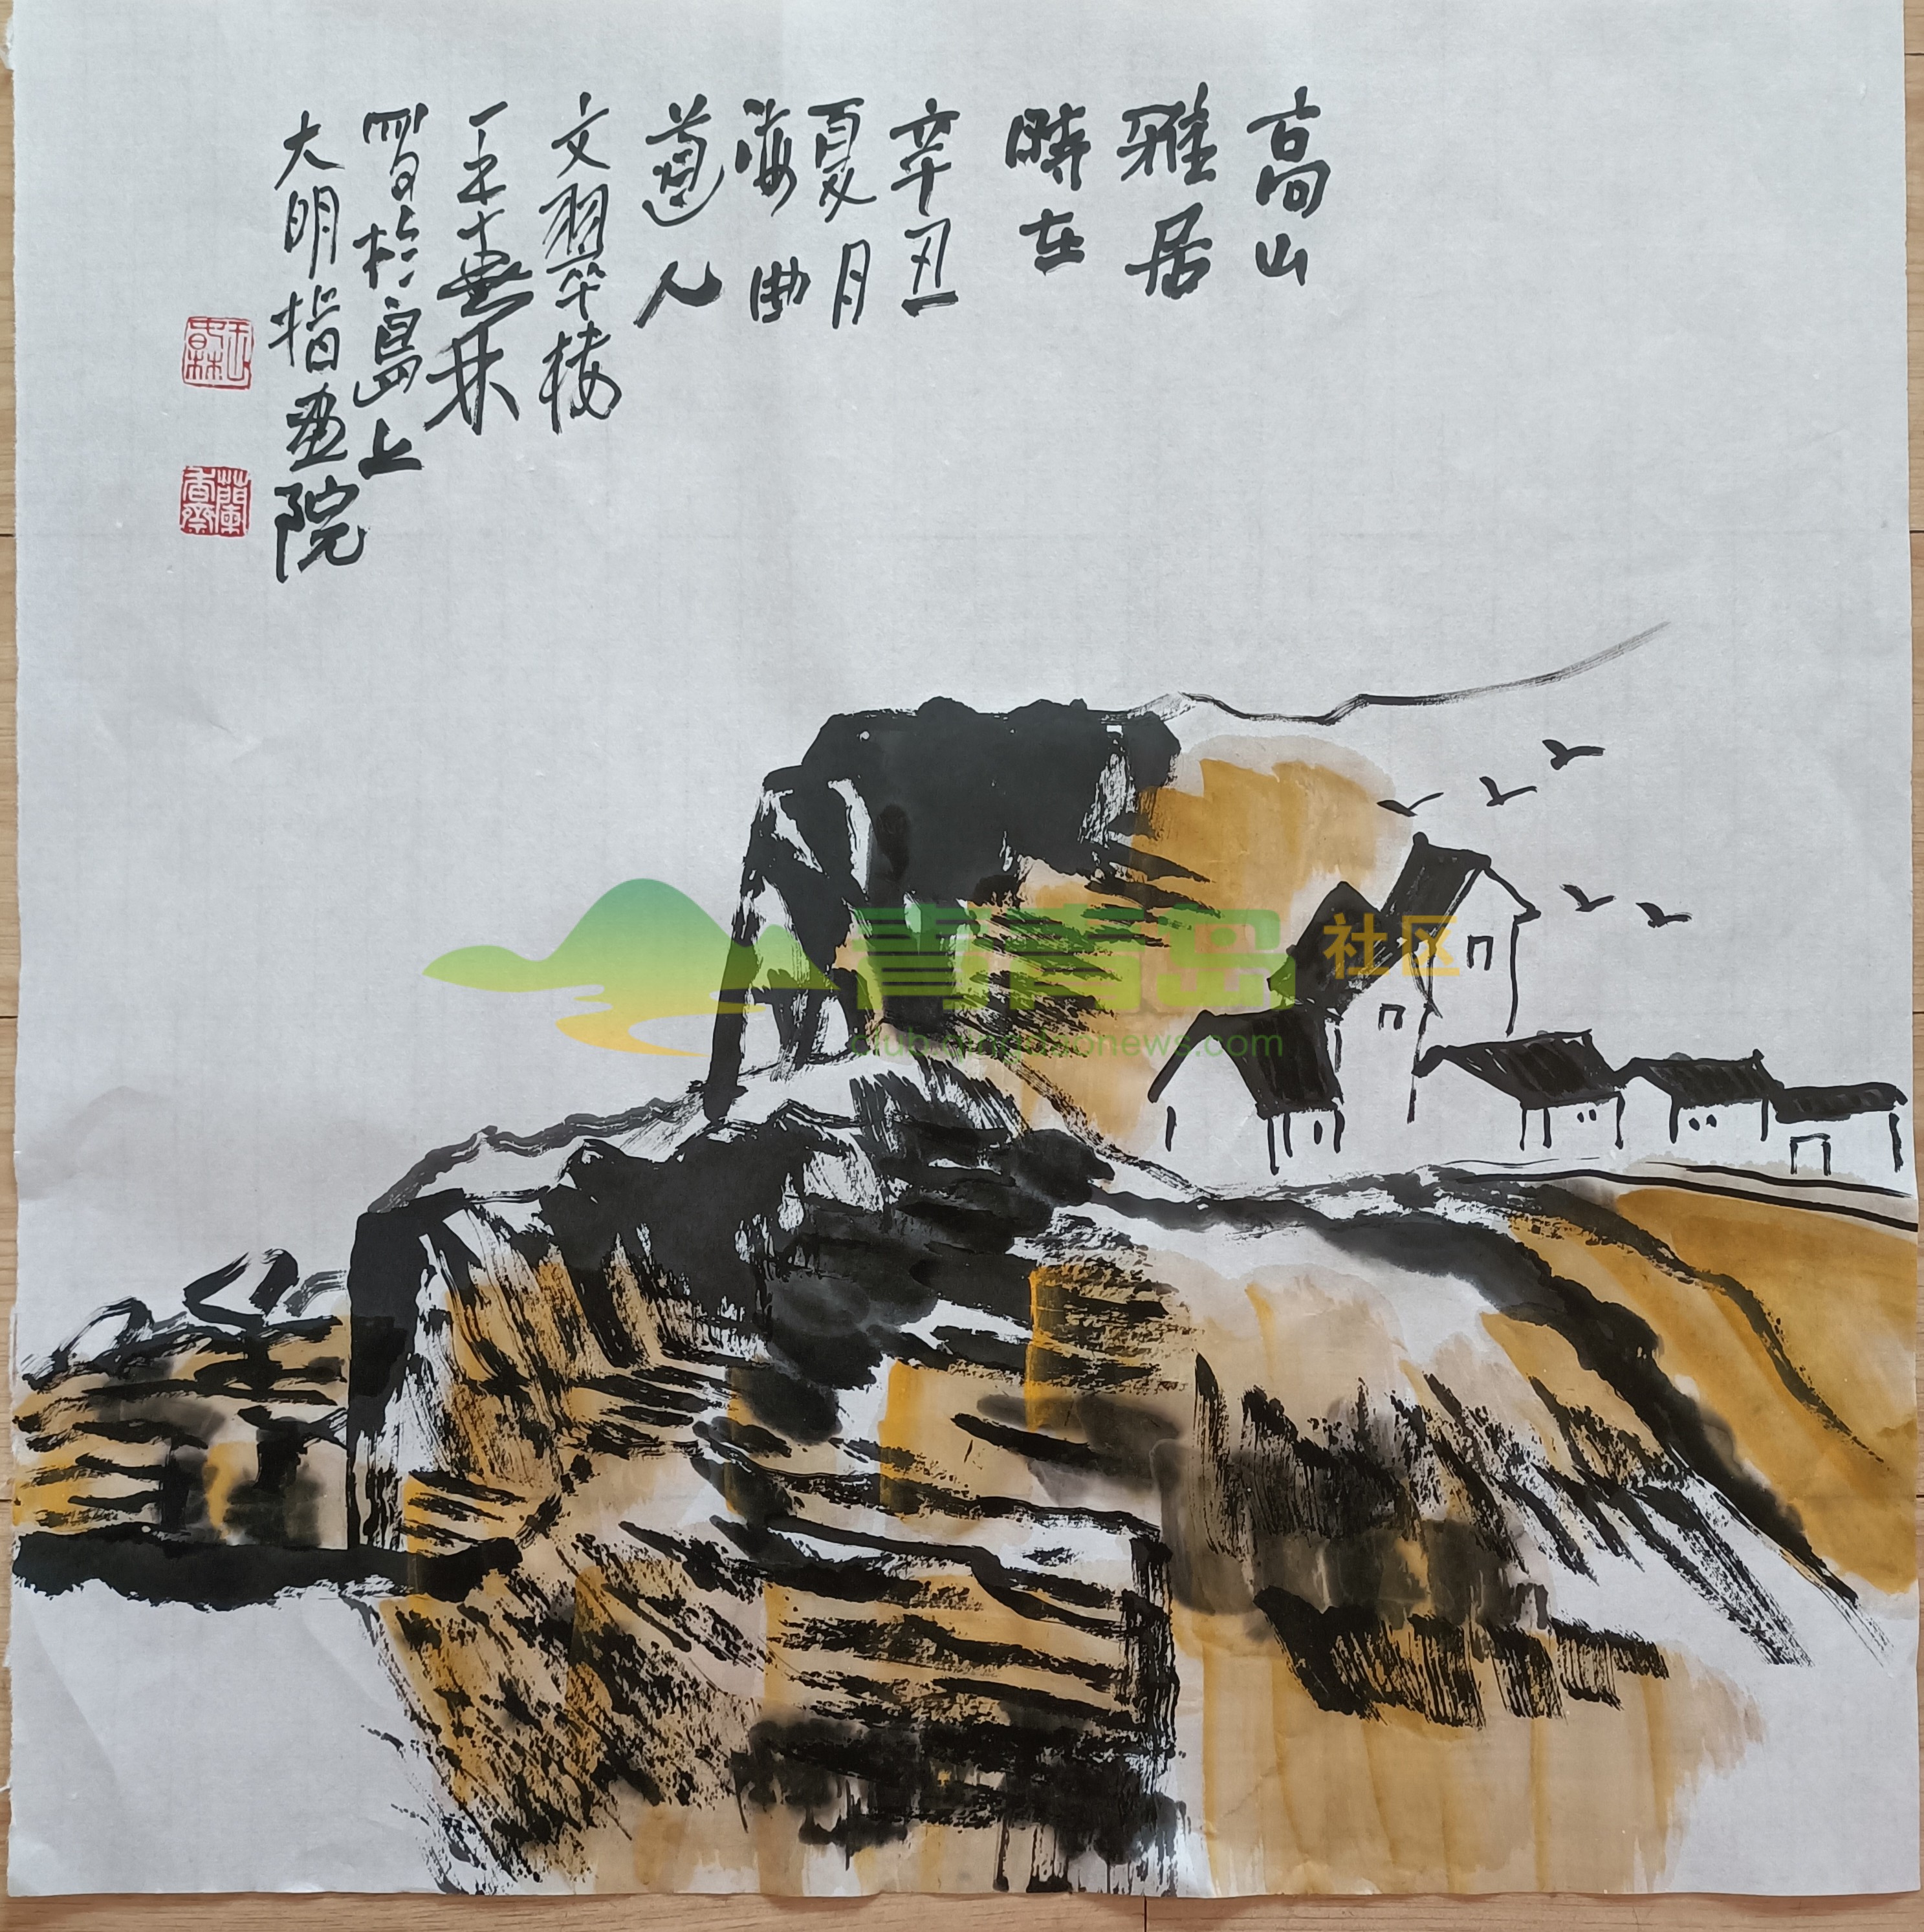 高山
雅居
時在
辛丑
夏月
海曲
道人
文
王林
於島上
大明指畫院
蘭香齋
青青岛社区
club.qingdaonews.com